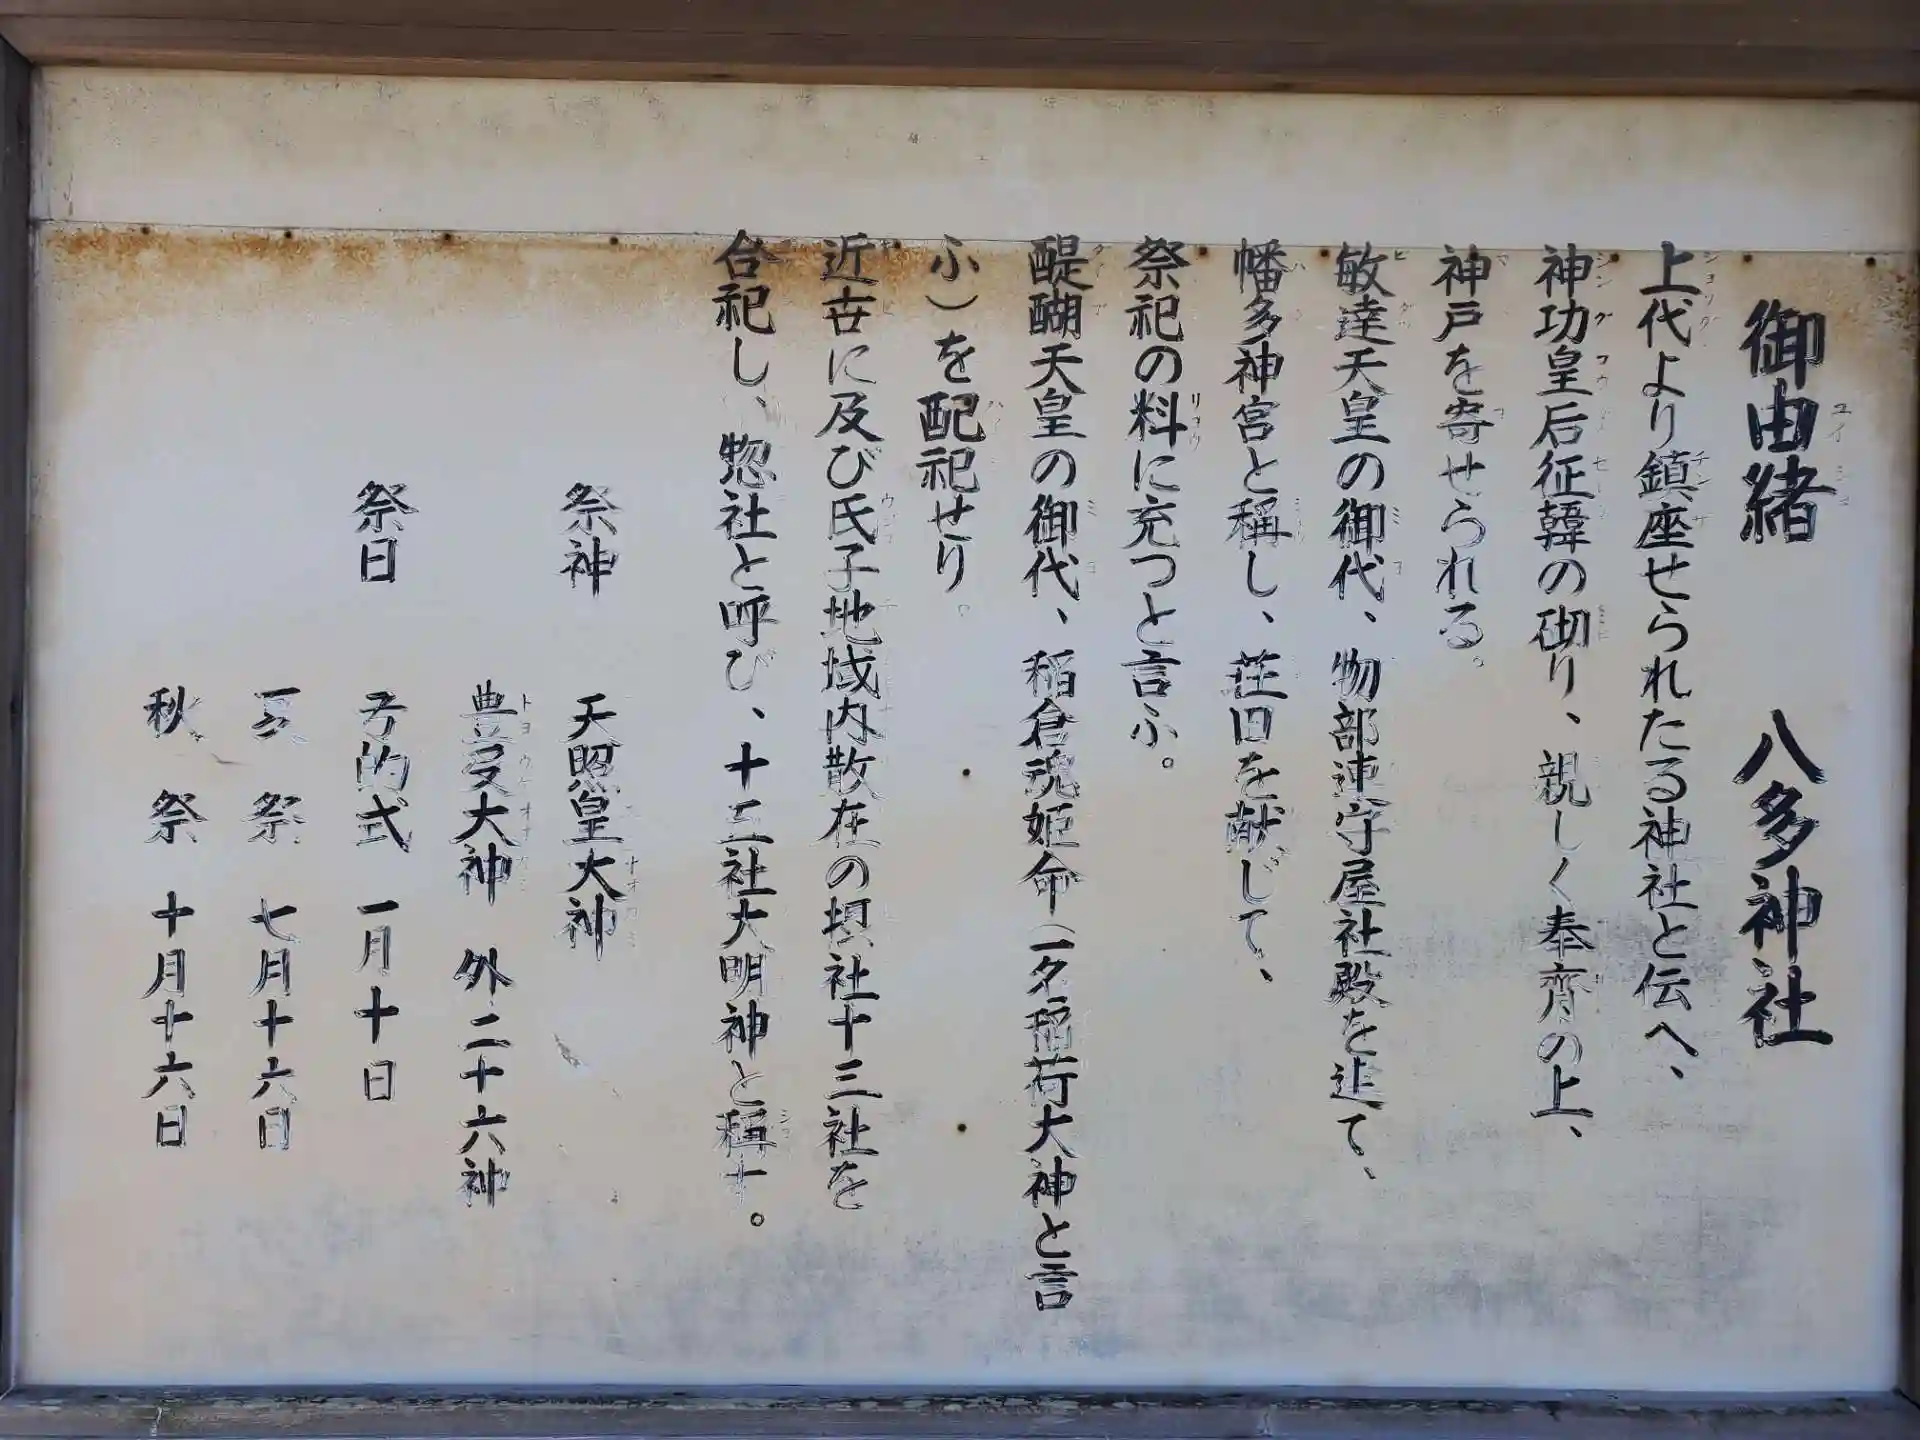 御由緒　八多神社
上代より鎮座せられたる神社と伝へ、
神功皇后征韓の砌り、親しく奉齋の上、
神戸を寄せられる。
敏達天皇の御代、物部連守屋社殿を造て、
幡多神宮と稱し、荘田を献じて、
祭祀の料に充つと言ふ。
醍醐天皇の御代、稲倉魂姫命（一名稲荷大神と言
ふ）を配祀せり。
近世に及び氏子地域内散在の損社十三社を
合祀し、惣社と呼び、十三社大明神と稱す。
祭神　天照皇大神
豊受大神　外二十六神
祭日　弓的式　一月十日
夏祭　七月十六日
秋祭　十月十六日